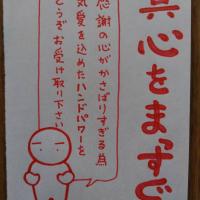 真心をまっすぐ
感謝の心がかさばりすぎる為
気愛を込めたハンドパワーを
どうぞ お受け取り下さい